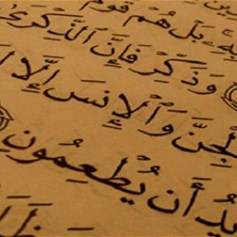 بَلْ هُمْ قَوْمٌ
وَذَكِّرْ فَإِنَّ ٱلذِّكْرَىٰ
لْجِنَّ وَٱلْإِنسَ إِلَّا
يدُ أَن يُطْعِمُونِ